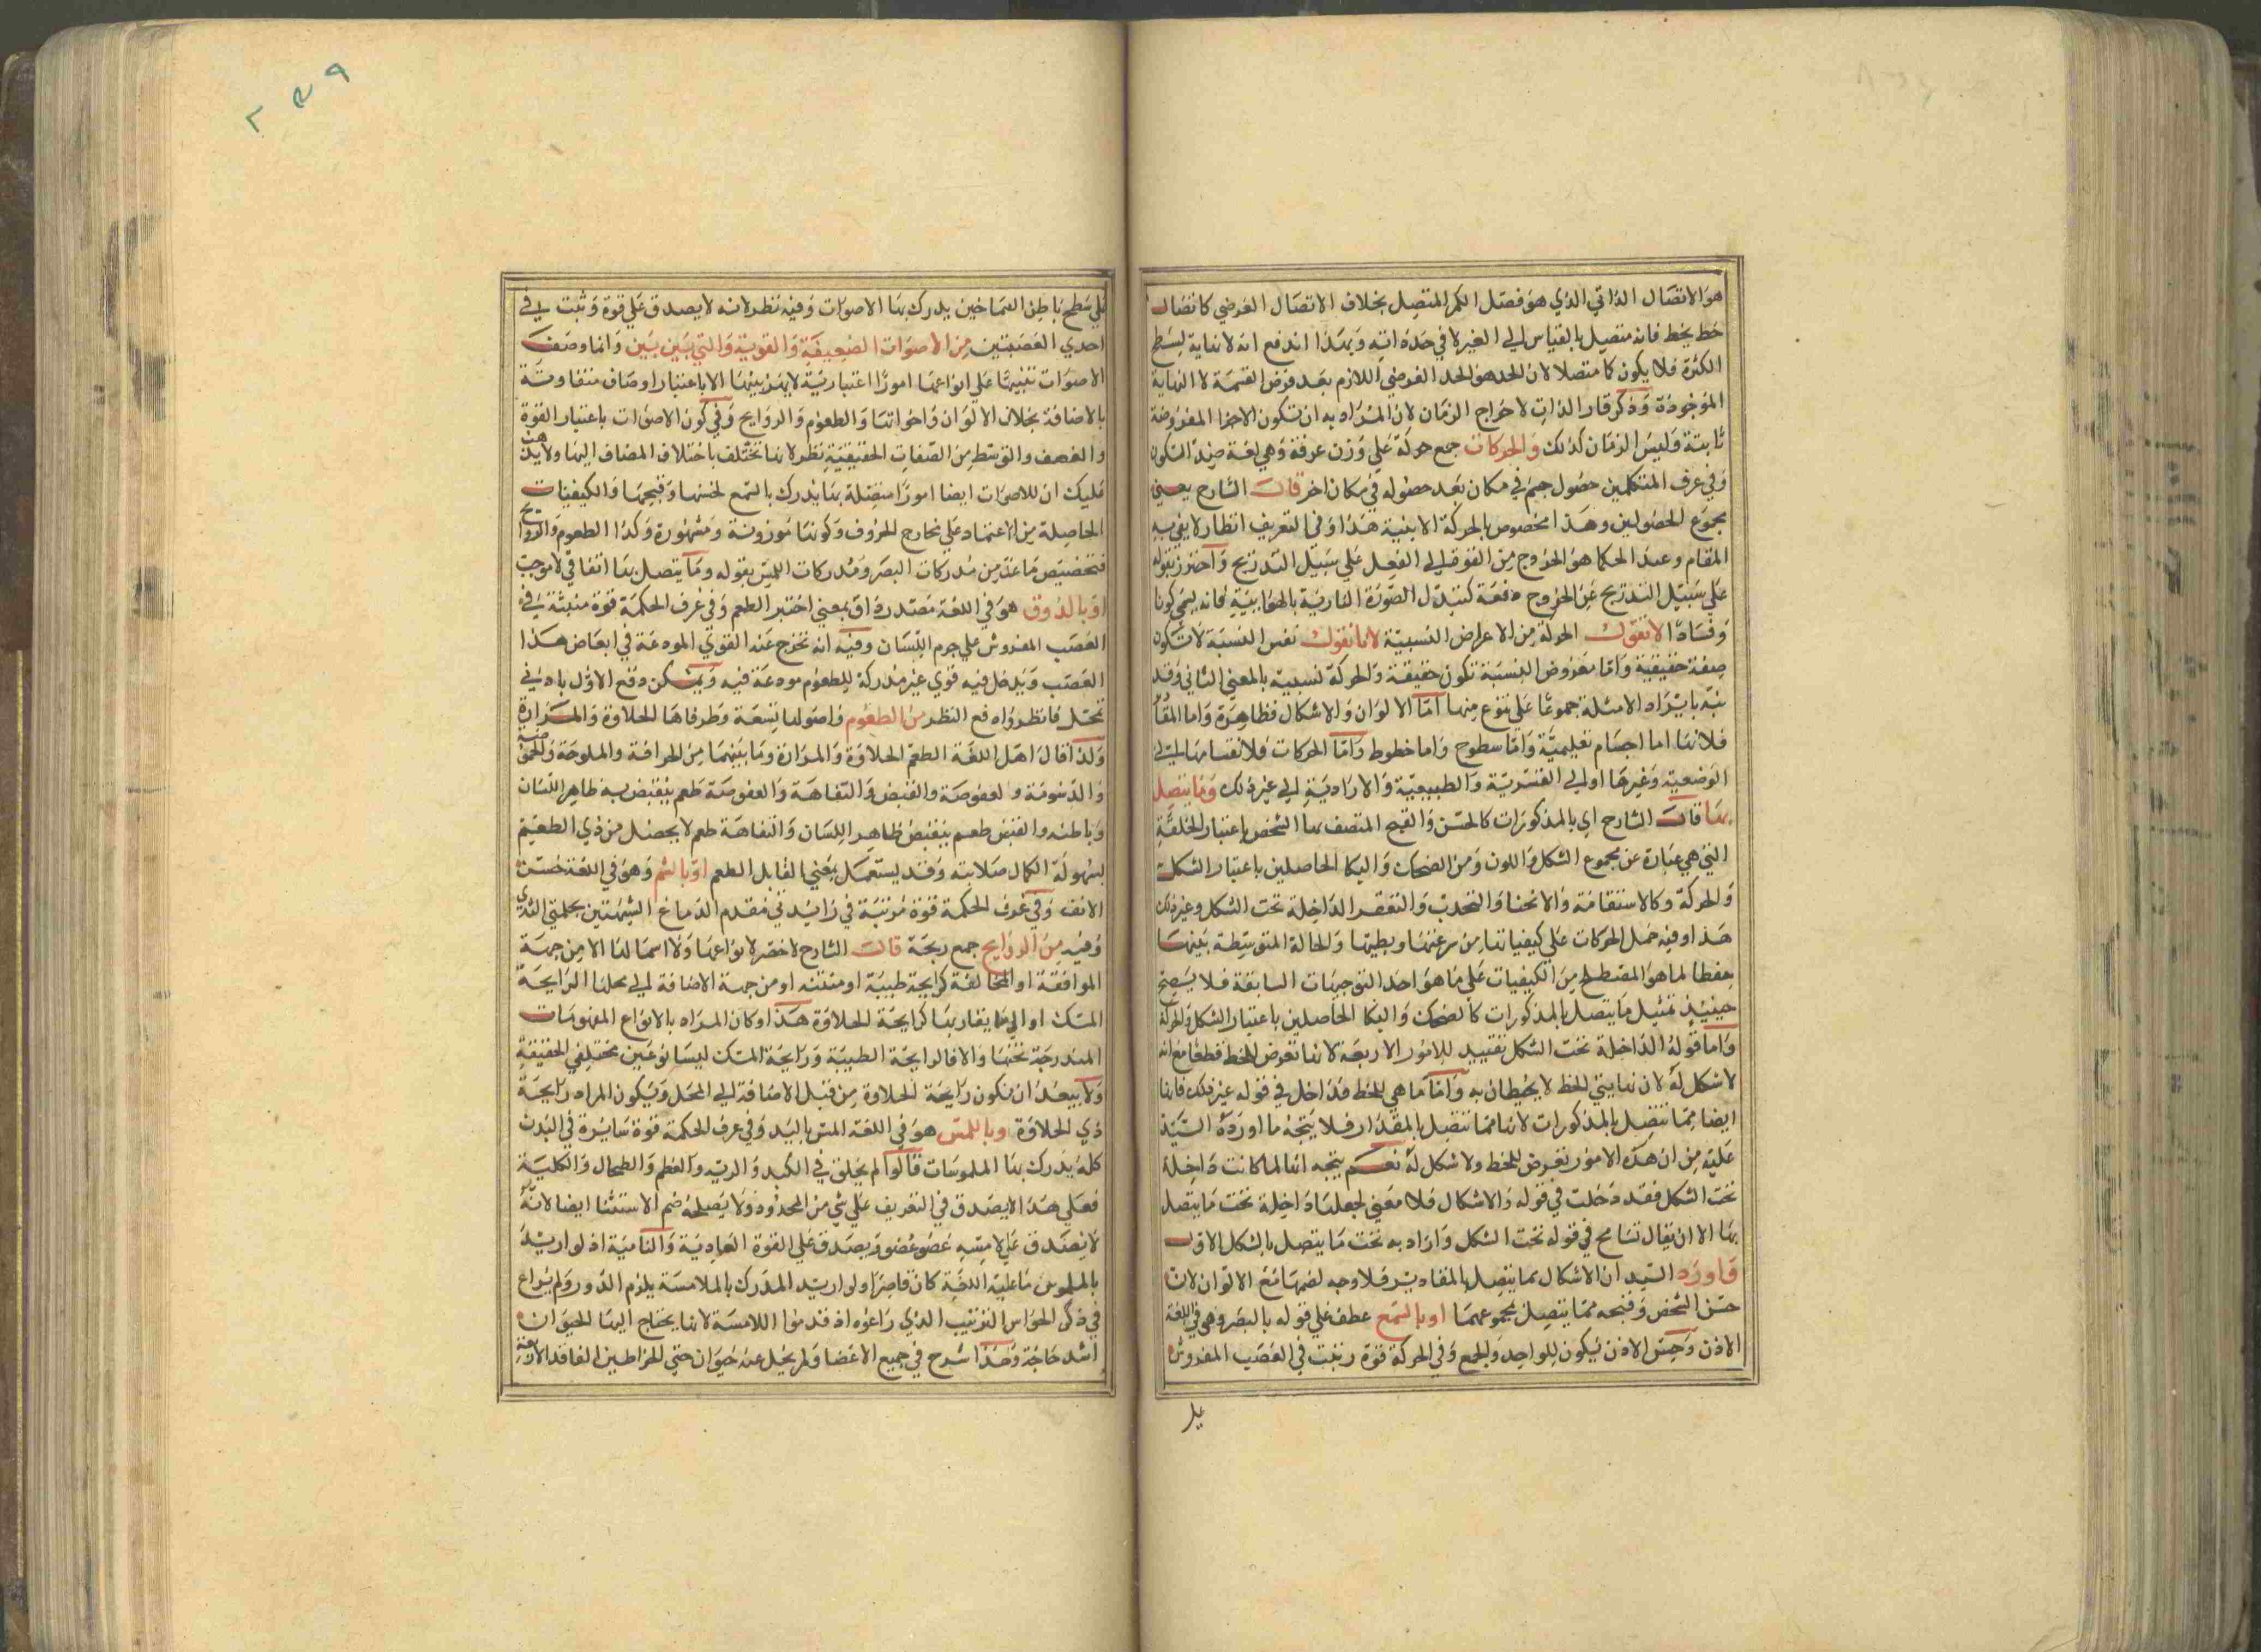 هو الاتصال الذاتي الذي هو فصل الكم المتصل بخلاف الاتصال العرضي كاتصال
خط بخط فانه متصل بالقياس الي الغير لا في حد ذاته وبهذا اندفع انه لا نهاية لسطح
الكثرة فلا يكون كما متصلا لان الحد هو الحد الفرضي اللازم بعد فرض القسمة لا النهاية
الموجودة وذكر قار الذات لاخراج الزمان لان المراد به ان تكون الاجزا المفروضة
ثابتة وليس الزمان كذلك والحركات جمع حركة علي وزن عرفة وهي لغة ضد السكون
وفي عرف المتكلمين حصول جسم في مكان بعد حصوله في مكان اخر قال الشارح يعني
مجموع الحصولين وهذا مخصوص بالحركة الاينية هذا وفي التعريف انظار لا يفي به
المقام وعند الحكما هو الخروج من القوة الي الفعل علي سبيل التدريج واحترز بقوله
علي سبيل التدريج عن الخروج دفعة كتبدل الصورة النارية بالهوايية فانه يسمي كونا
وفسادا لا تقول الحركة من الاعراض النسبية لانا نقول نفس النسبة لا تكون
صفة حقيقية واما معروض النسبة تكون حقيقة والحركة نسبية بالمعني الثاني وقد
نبه بايراد الامثلة جموعا علي تنوع منها اما الالوان والاشكال فظاهرة واما المقا
فلانها اما اجسام تعليمية واما سطوح واما خطوط واما الحركات فلانقسامها الي
الوضعية وغيرها او الي القسرية والطبيعية والارادية الي غير ذلك وما يتصل
بها قال الشارح اي بالمذكورات كالحسن والقبح المتصف بها الشخص باعتبار الخلقة
التي هي عبارة عن مجموع الشكل واللون ومن الضحك والبكا الحاصلين باعتبار الشكل
والحركة وكالاستقامة والانحنا والتحدب والتقعر الداخلة تحت الشكل وغير ذلك
هذا وفيه حمل الحركات علي كيفياتها من سرعتها وبطيها والحالة المتوسطة بينهما
حفظا لما هو المصطلح من الكيفيات علي ما هو احد التوجيهات السابقة فلا يصح
حينيذ تمثيل ما يتصل بالمذكورات كالضحك والبكا الحاصلين باعتبار الشكل والحركة
واما قوله الداخلة تحت الشكل تقييد للامور الاربعة لانها تعرض للخط قطعا مع انه
لا شكل له لان نهايتي الخط لا يحيطان به واما ما هي للخط فداخل في قوله غير ذلك فانها
ايضا مما تتصل بالمذكورات لانها مما تتصل بالمقدار فلا يتجه ما اورده السيد
عليه من ان هذه الامور تعرض للخط ولا شكل له نعم يتجه انها لما كانت داخلة
تحت الشكل فقد دخلت في قوله والاشكال فلا معني لجعلها داخلة تحت ما يتصل
بها الا ان يقال تسامح في قوله تحت الشكل واراد به تحت ما يتصل بالشكل الاول
واورد السيد ان الاشكال مما يتصل بالمقادير فلا وجه لضمها مع الالوان لان
حسن الشخص وقبحه مما يتصل بمجموعهما او بالسمع عطف علي قوله بالبصر وهي في اللغة
الاذن وحس الاذن يكون للواحد والجمع وفي الحركة قوة رتبت في العصب المفروش
علي
علي سطح باطن الصماخين يدرك بها الاصوات وفيه نظر لانه لا يصدق علي قوة وثبت في
احدي العصبتين من الاصوات الضعيفة والقوية والتي بين بين وانما وصف
الاصوات تنبيها علي انواعها امورا اعتبارية لا يميز بينها الا باعتبار اوصاف متفاوتة
بالاضافة بخلاف الالوان واخواتها والطعوم والروايح وفي كون الاصوات باعتبار القوة
والضعف والتوسط من الصفات الحقيقية نظر لانها تختلف باختلاف المضاف اليها ولا يذهب
عليك ان للاصوات ايضا امورا متصلة بها يدرك بالسمع لحسنها وقبحها والكيفيات
الحاصلة من الاعتماد علي مخارج الحروف وكونها موزونة ومشهورة وكذا الطعوم والروايح
فتخصيص ما عد من مدركات البصر ومدركات اللمس بقوله وما يتصل بها اتفاقي لا موجب
او بالذوق هو في اللغة مصدر ذاق بمعني اختبر الطعم وفي عرف الحكمة قوة منبثة في
العصب المفروش علي جرم اللسان وفيه انه تخرج عنه القوي المودعة في ابعاض هذا
العصب ويدخل فيه قوي غير مدركة للطعوم مودعة فيه ويمكن دفع الاول بادني
تحمل فانظر وادفع النظر من الطعوم واصولها تسعة وطرفاها الحلاوة والمرارة
ولذا قال اهل اللغة الطعم الحلاوة والمرارة وما بينهما من الحرافة والملوحة والحموضة
والدسومة والعفوصة والقبض والتفاهة والعفوصة طعم ينقبض به ظاهر اللسان
وباطنه والقبض طعم ينقبض ظاهر اللسان والتفاهة طعم لا يحصل من ذي الطعم
لسهولة الكمال صلابته وقد يستعمل بمعني القابل الطعم او بالشم وهو في اللغة حس
الانف وفي عرف الحكمة قوة مرتبة في زايدتي مقدم الدماغ الشبيهتين بحلمتي الثدي
وفيه من الروايح جمع ريحة قال الشارح لا حصر لانواعها ولا اسما لها الا من جهة
الموافقة او المخالفة كرايحة طيبة او منتنة او من جهة الاضافة الي محلها الرايحة
المسك او الي ما يقاربها كرايحة الحلاوة هذا وكان المراد بالانواع المفهومات
المندرجة تحتها والا فالرايحة الطيبة ورايحة المسك ليسا نوعين مختلفي الحقيقة
ولا يبعد ان تكون رايحة الحلاوة من قبل الاضافة الي المحل ويكون المراد رايحة
ذي الحلاوة او باللمس هو في اللغة المس باليد وفي عرف الحكمة قوة سارية في البدن
كله يدرك بها الملموسات قالوا لم يخلق في الكبد والرية والعظم والطحال والكلية
فعلي هذا لا يصدق في التعريف علي شي من المحدود ولا يصلحه ضم الاستثنا ايضا لانه
لا يصدق علي لامسة عضو عضو ويصدق علي القوة الغاذية والنامية اذ لو اريد
بالملموس ما عليه اللغة كان قاصرا ولو اريد المدرك بالملامسة يلزم الدور ولم يراع
في ذكر الحواس الترتيب الذي راعوه اذ قدموا اللامسة لانها يحتاج اليها الحيوان
اشد حاجة وهذا شرح في جميع الاعضا ولم يخل عنه حيوان حتي الخراطين الفاقد الاربعة